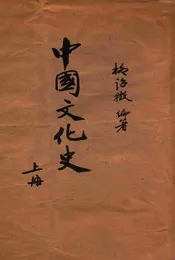 柳詒徵 編著
中國文化史
上册